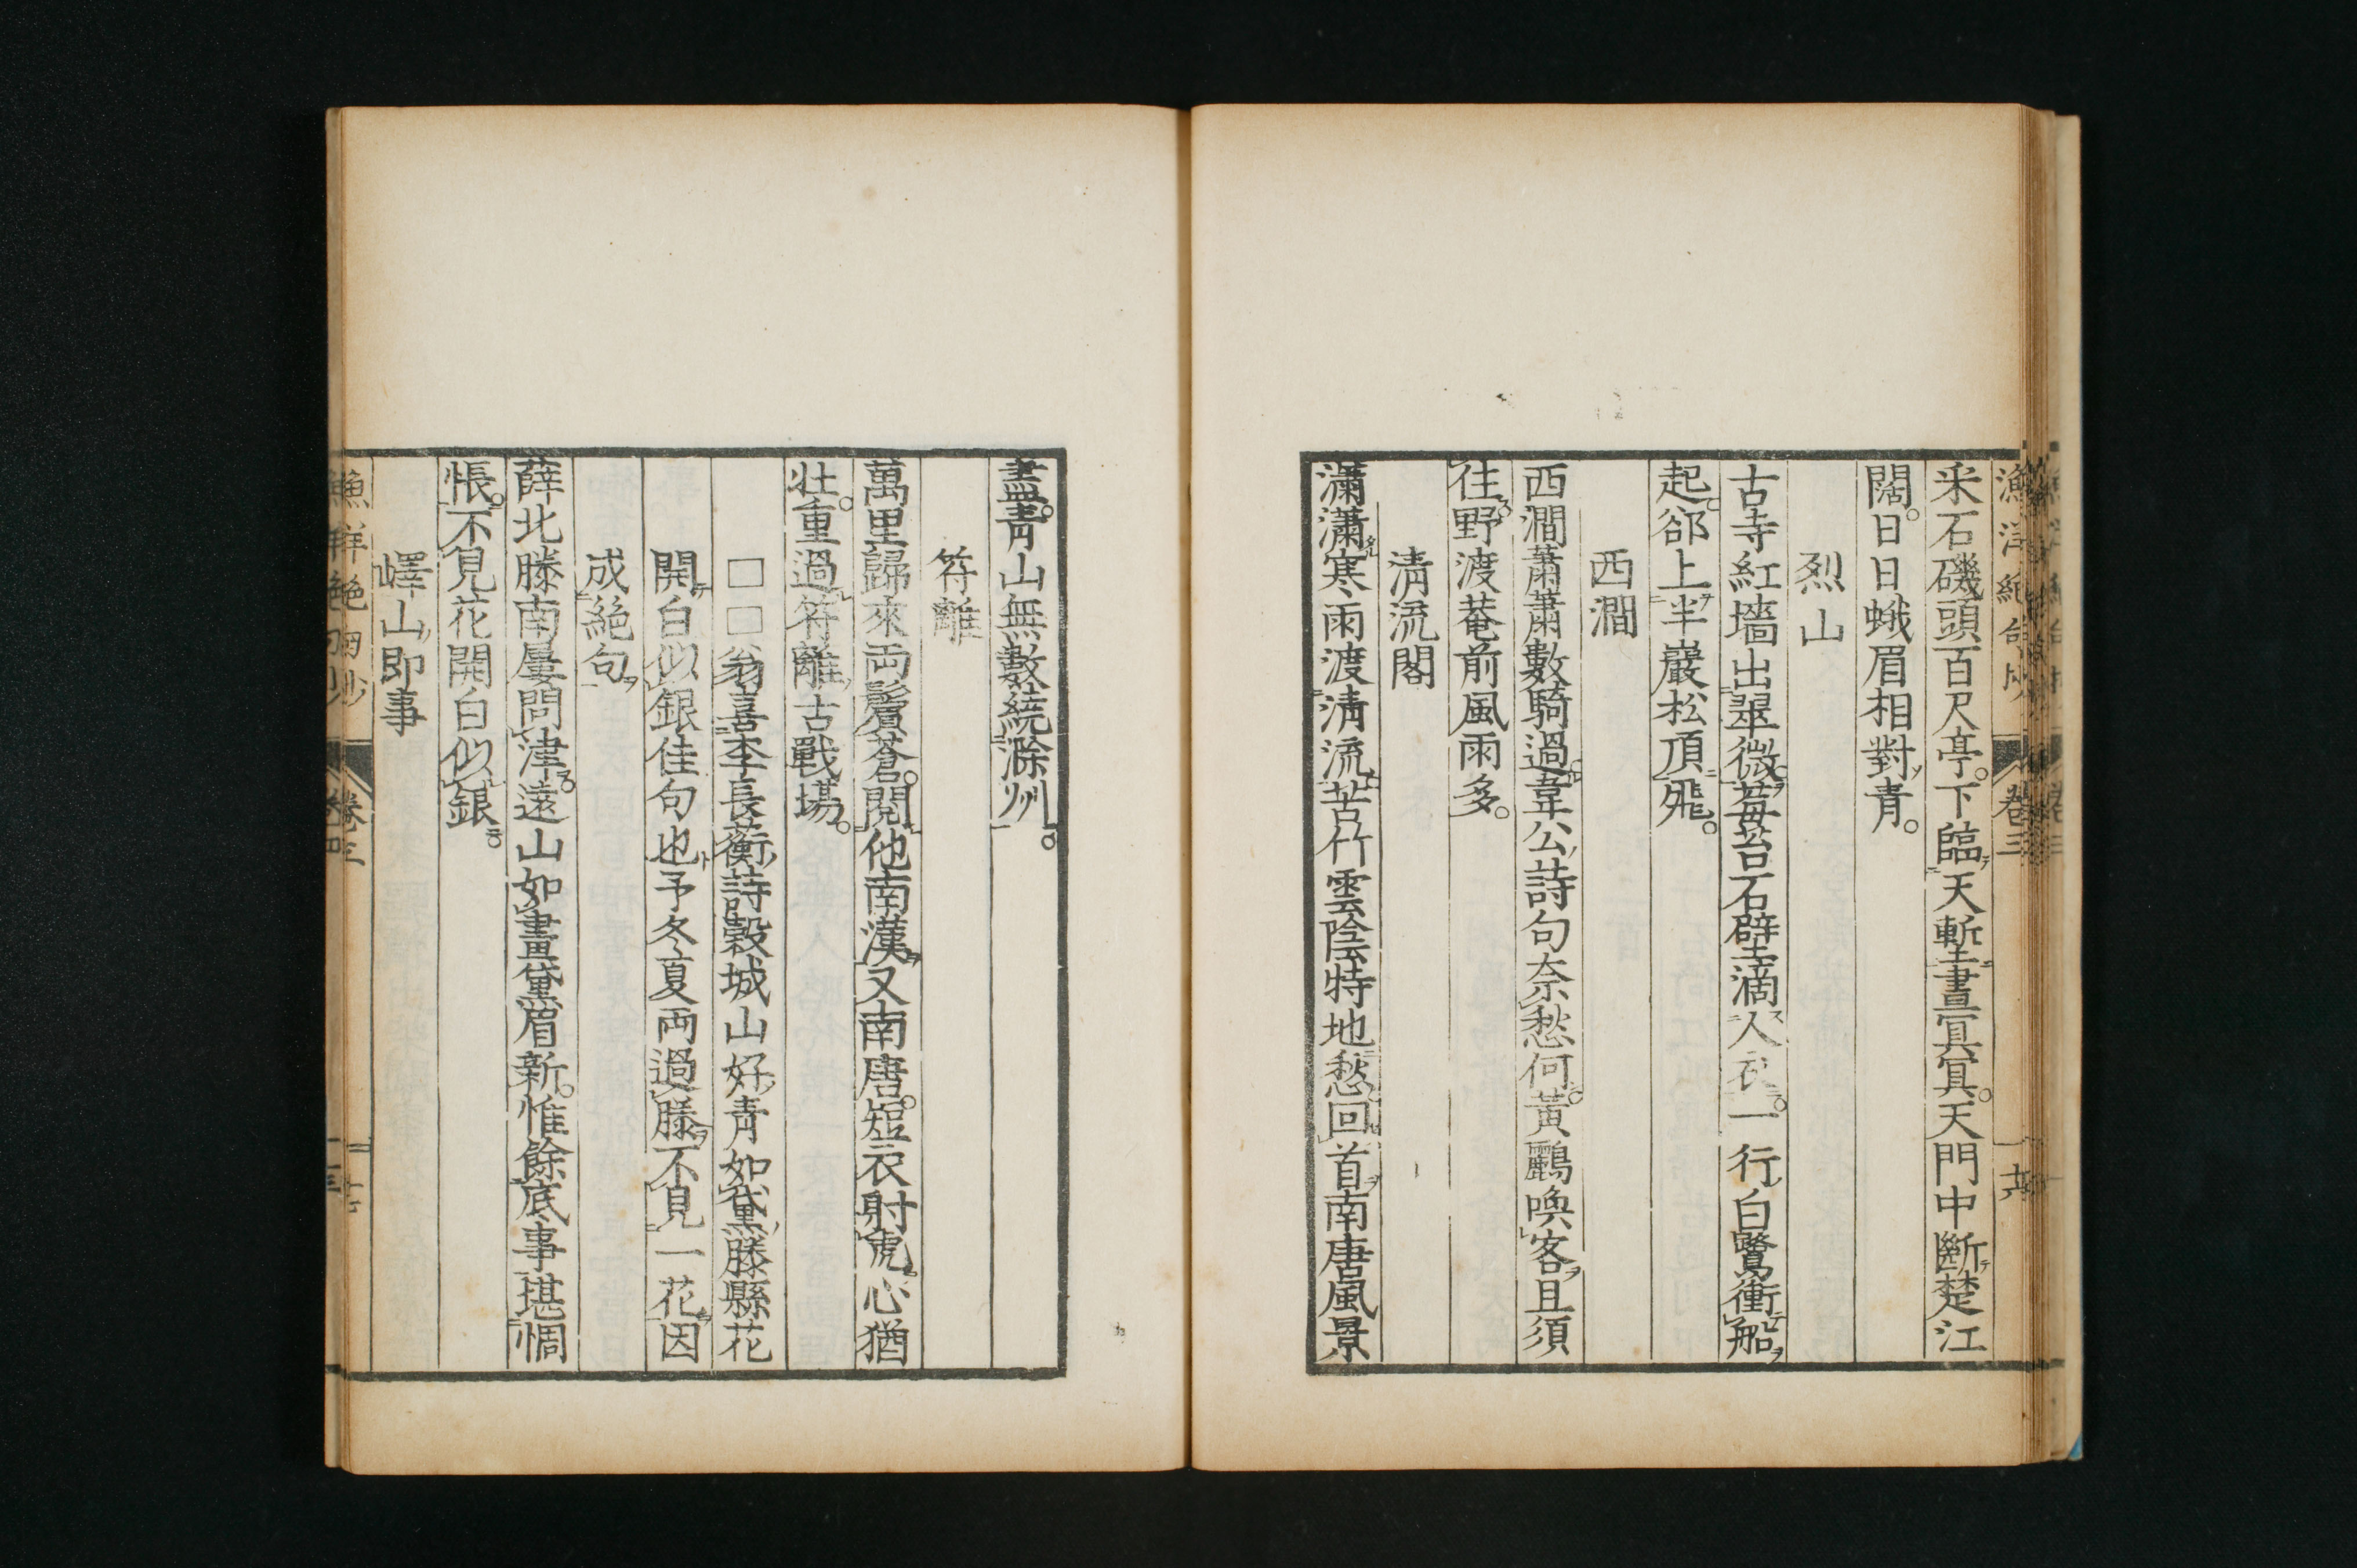 漁洋絶句抄 卷三 十六
采石磯頭百尺亭。下臨天塹晝冥冥。天門中斷楚江
闊。日日蛾眉相對青。
烈山
古寺紅墻出翠微。莓苔石壁滴人衣。一行白鷺衝船
起。郤上半巖松頂飛。
西澗
西澗蕭蕭數騎過。韋公詩句奈愁何。黃鸝喚客且須
往。野渡菴前風雨多。
清流閣
瀟瀟寒雨渡清流。苦竹雲陰特地愁。回首南唐風景
盡。青山無數繞滁州。
符離
萬里歸來両鬢蒼。閱他南漢又南唐。短衣射虎心猶
壯。重過符離古戰場。
□□翁喜李長蘅詩穀城山好青如黛滕縣花
開白似銀佳句也予冬夏両過滕不見一花因
成絕句
薛北滕南屢問津。遠山如畫黛眉新。惟餘底事堪惆
悵。不見花開白似銀。
嶧山即事
漁洋絶句抄 卷三